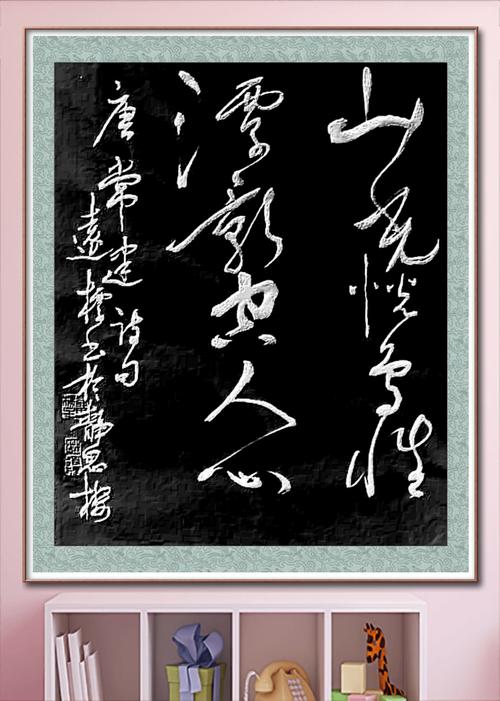 山光悦鸟性
潭影空人心
唐常建诗句
遠书於静思楼